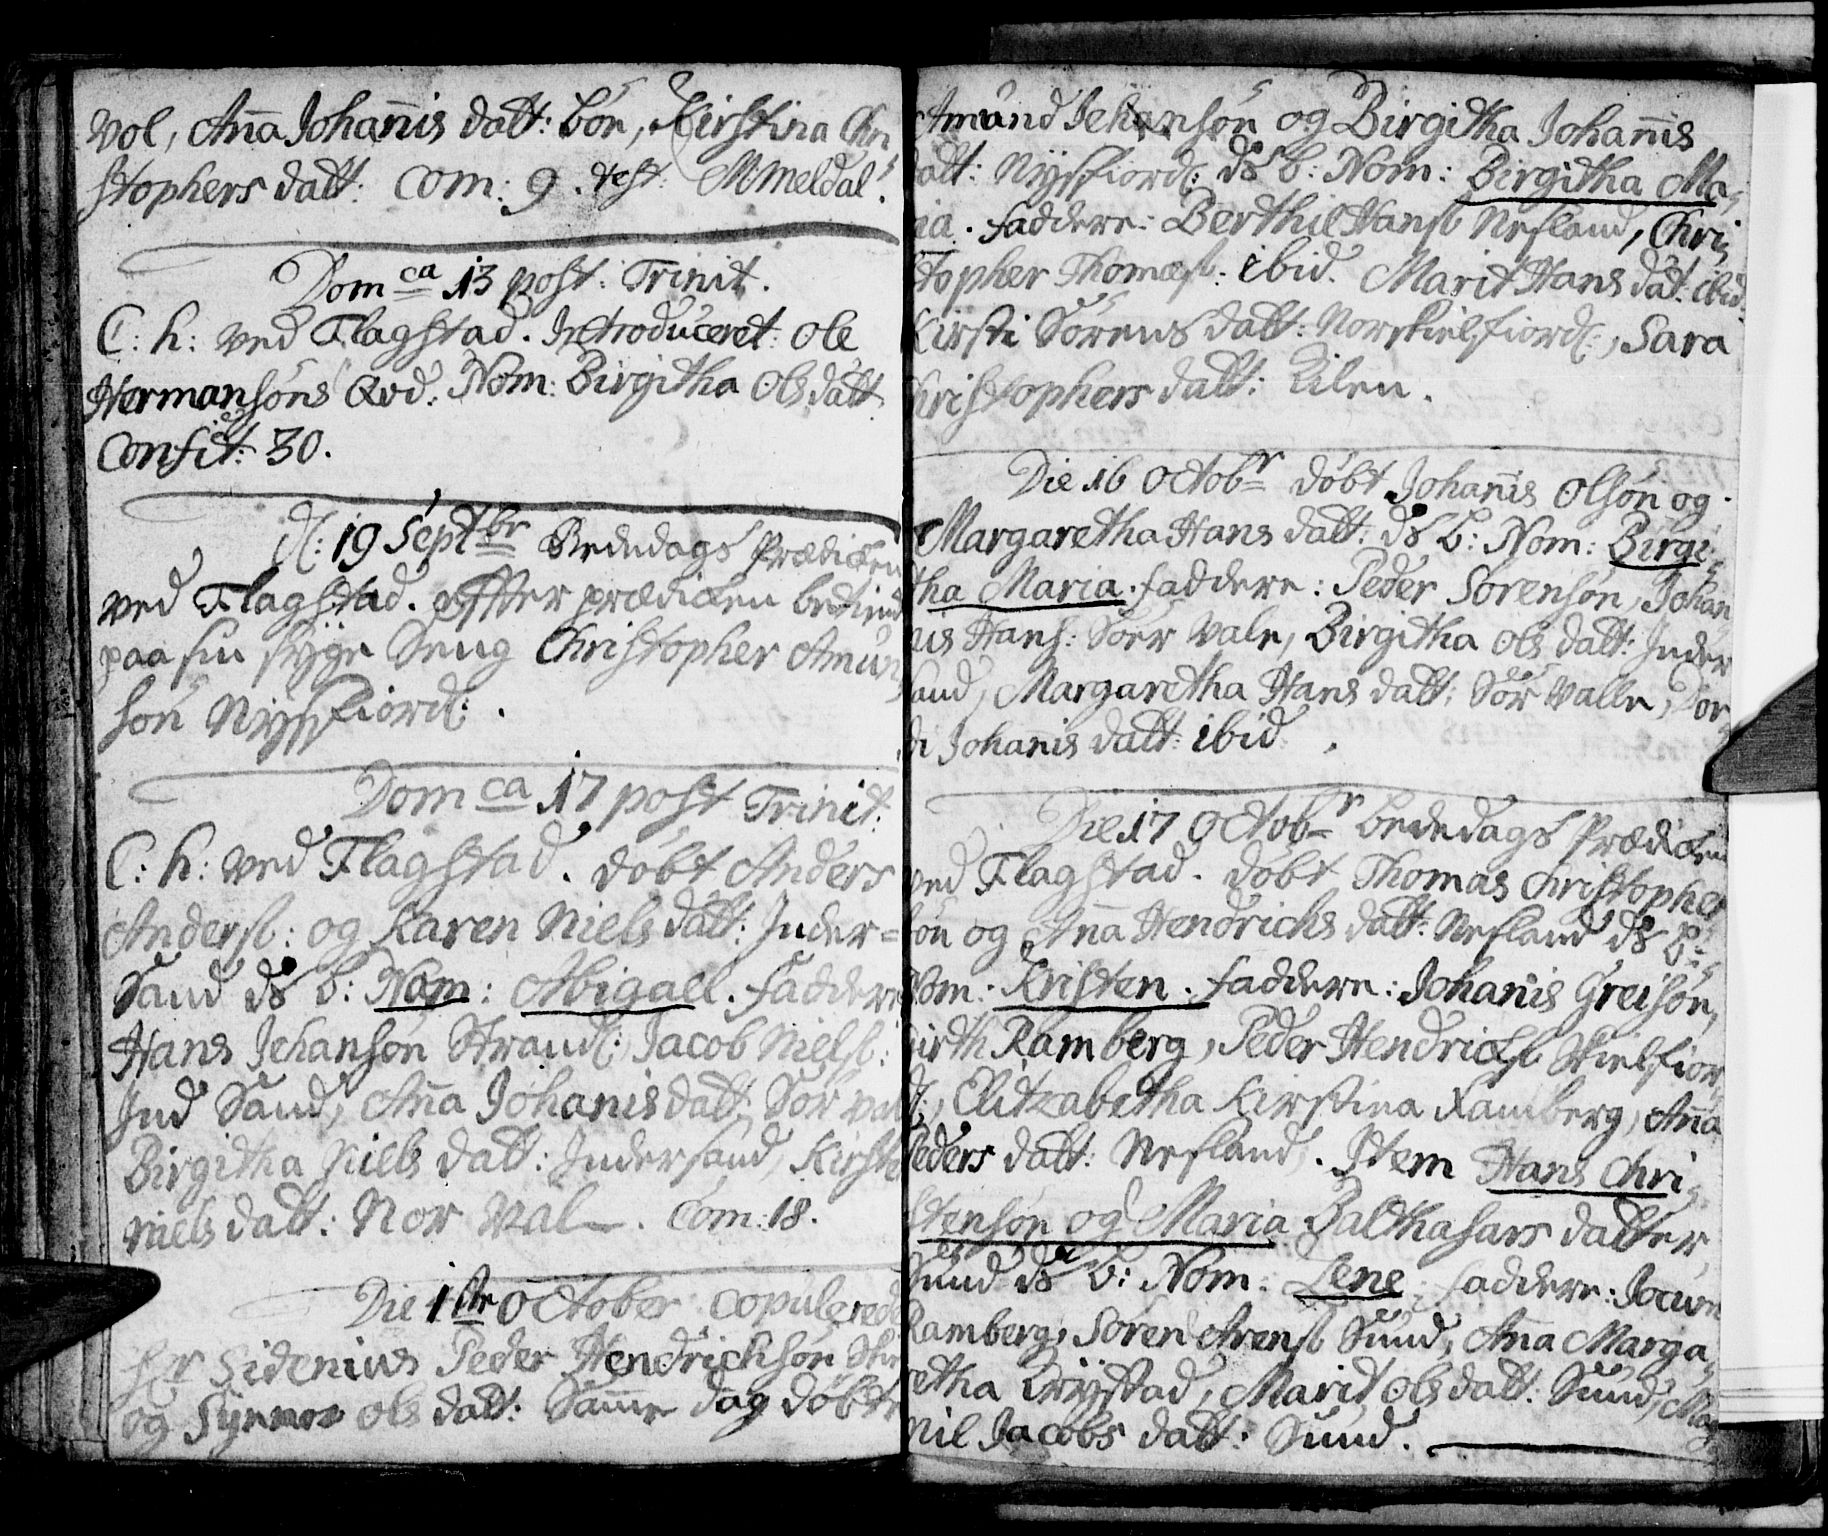 Vol, Anna Johannis datt: bór, Kirstina Chri
stophers datt: Com: 9. test: M: Meldal.
Dom ca 13 post: Trinit.
C: h: ved Flagstad. Introduceret: Ole
Hermansöns Qvd: Nom: Birgitha Ols datt
Confit: 30.
d: 19 Septbr Bededags Prædicken
ved Flagstad. effter prædicken betient
paa sin syge Seng Christopher Amun
són Nyssfiord:.
Dom ca 17 post Trinit:
C: h: ved Flagstad. dóbt Anders
Andersl: og Karen Niels datt: Inder=
Sand ds b: Nom: Abigael. faddere
Hans Jehansón Strand: Jacob Nielsl:
Ind Sand, Anna Johanis datt: Sór val
Birgitha Niels datt: Indersand, Kirste
niels datt: Nor Val. Com: 18.
Die 1ste October copulerede
hr Sidenius Peder Hendrichsón
og Synnor Ols datt: Samme dag dóbt
Amund Jehansón og Birgitha Johannis
datt: Nyssfiord: ds b: Nom: Birgitha Ma,
ria. faddere: Berthil Hansl Nesland, Chri,
stopher Thomæsl: ibid. Marit Hans dat: ibid.
Kirsti Sórens datt: Norskielfiord:, Sara
Christophers datt: Eilen.
Die 16 Octobr dóbt Johannis Olsón og
Margaretha Hans datt: ds b: Nom: Birgi,
tha Maria. faddere: Peder Sórensón, Johan
nis Hans: Sóer Vale, Birgitha Ols datt: Inder
sand, Margaretha Hans datt: Sór Valle, Dor,
di Johannis datt: ibid.
Die 17 Octobr bededags Prædicken
ved Flagstad. dóbt Thomas Christopher
són og Anna Hendrichs datt: Nesland ds b:
Nom: Kristen. faddere: Johannis Greisón,
Girth Ramberg, Peder Hendrichsl Skielfior
d:, Elitzabetha Kirstina Ramberg, Anna
Peders datt: Nesland. Item Hans Chri,
stensón og Maria Balthasars datter,
Sund ds b: Nom: Lene. faddere: Jocum
Ramberg, Sóren Arensl Sund, Anna Marga,
retha Krÿstad, Marit Ols datt: Sund, Mag
nil Jacobs datt: Sund.